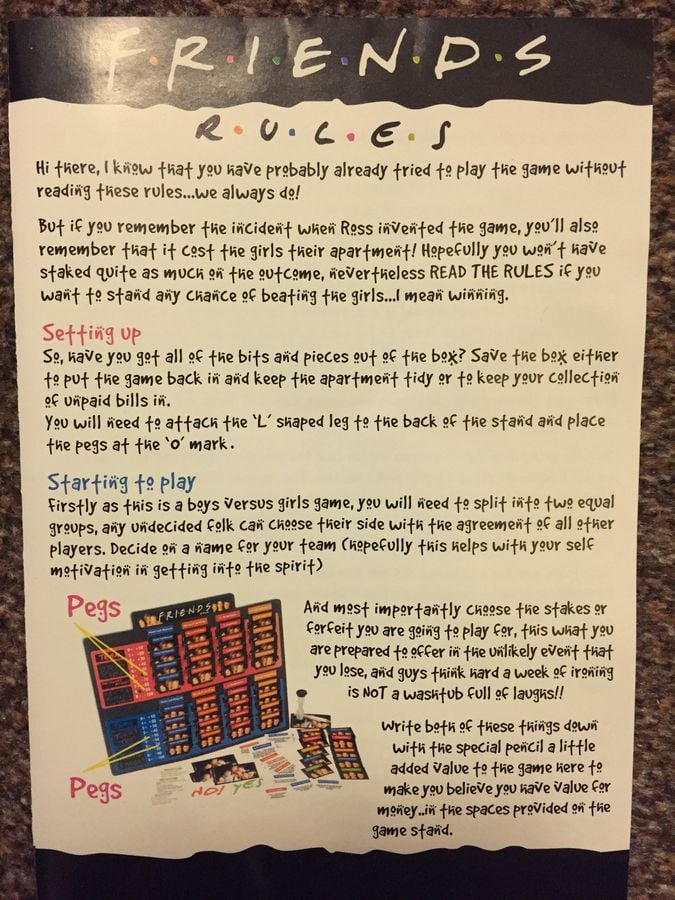 F·R·I·E·N·D·S
R·U·L·E·S
Hi there, I know that you have probably already tried to play the game without
reading these rules...we always do!
But if you remember the incident when Ross invented the game, you'll also
remember that it cost the girls their apartment! Hopefully you won't have
staked quite as much on the outcome, nevertheless READ THE RULES if you
want to stand any chance of beating the girls...I mean winning.
Setting up
So, have you got all of the bits and pieces out of the box? Save the box either
to put the game back in and keep the apartment tidy or to keep your collection
of unpaid bills in.
You will need to attach the 'L' shaped leg to the back of the stand and place
the pegs at the 'o' mark.
Starting to play
Firstly as this is a boys versus girls game, you will need to split into two equal
groups, any undecided folk can choose their side with the agreement of all other
players. Decide on a name for your team (hopefully this helps with your self
motivation in getting into the spirit)
Pegs
FRIENDS
And most importantly choose the stakes or
forfeit you are going to play for, this what you
are prepared to offer in the unlikely event that
you lose, and guys think hard a week of ironing
is NOT a washtub full of laughs!!
Write both of these things down
with the special pencil a little
added value to the game here to
make you believe you have value for
money..in the spaces provided on the
game stand.
Pegs
NO! YES